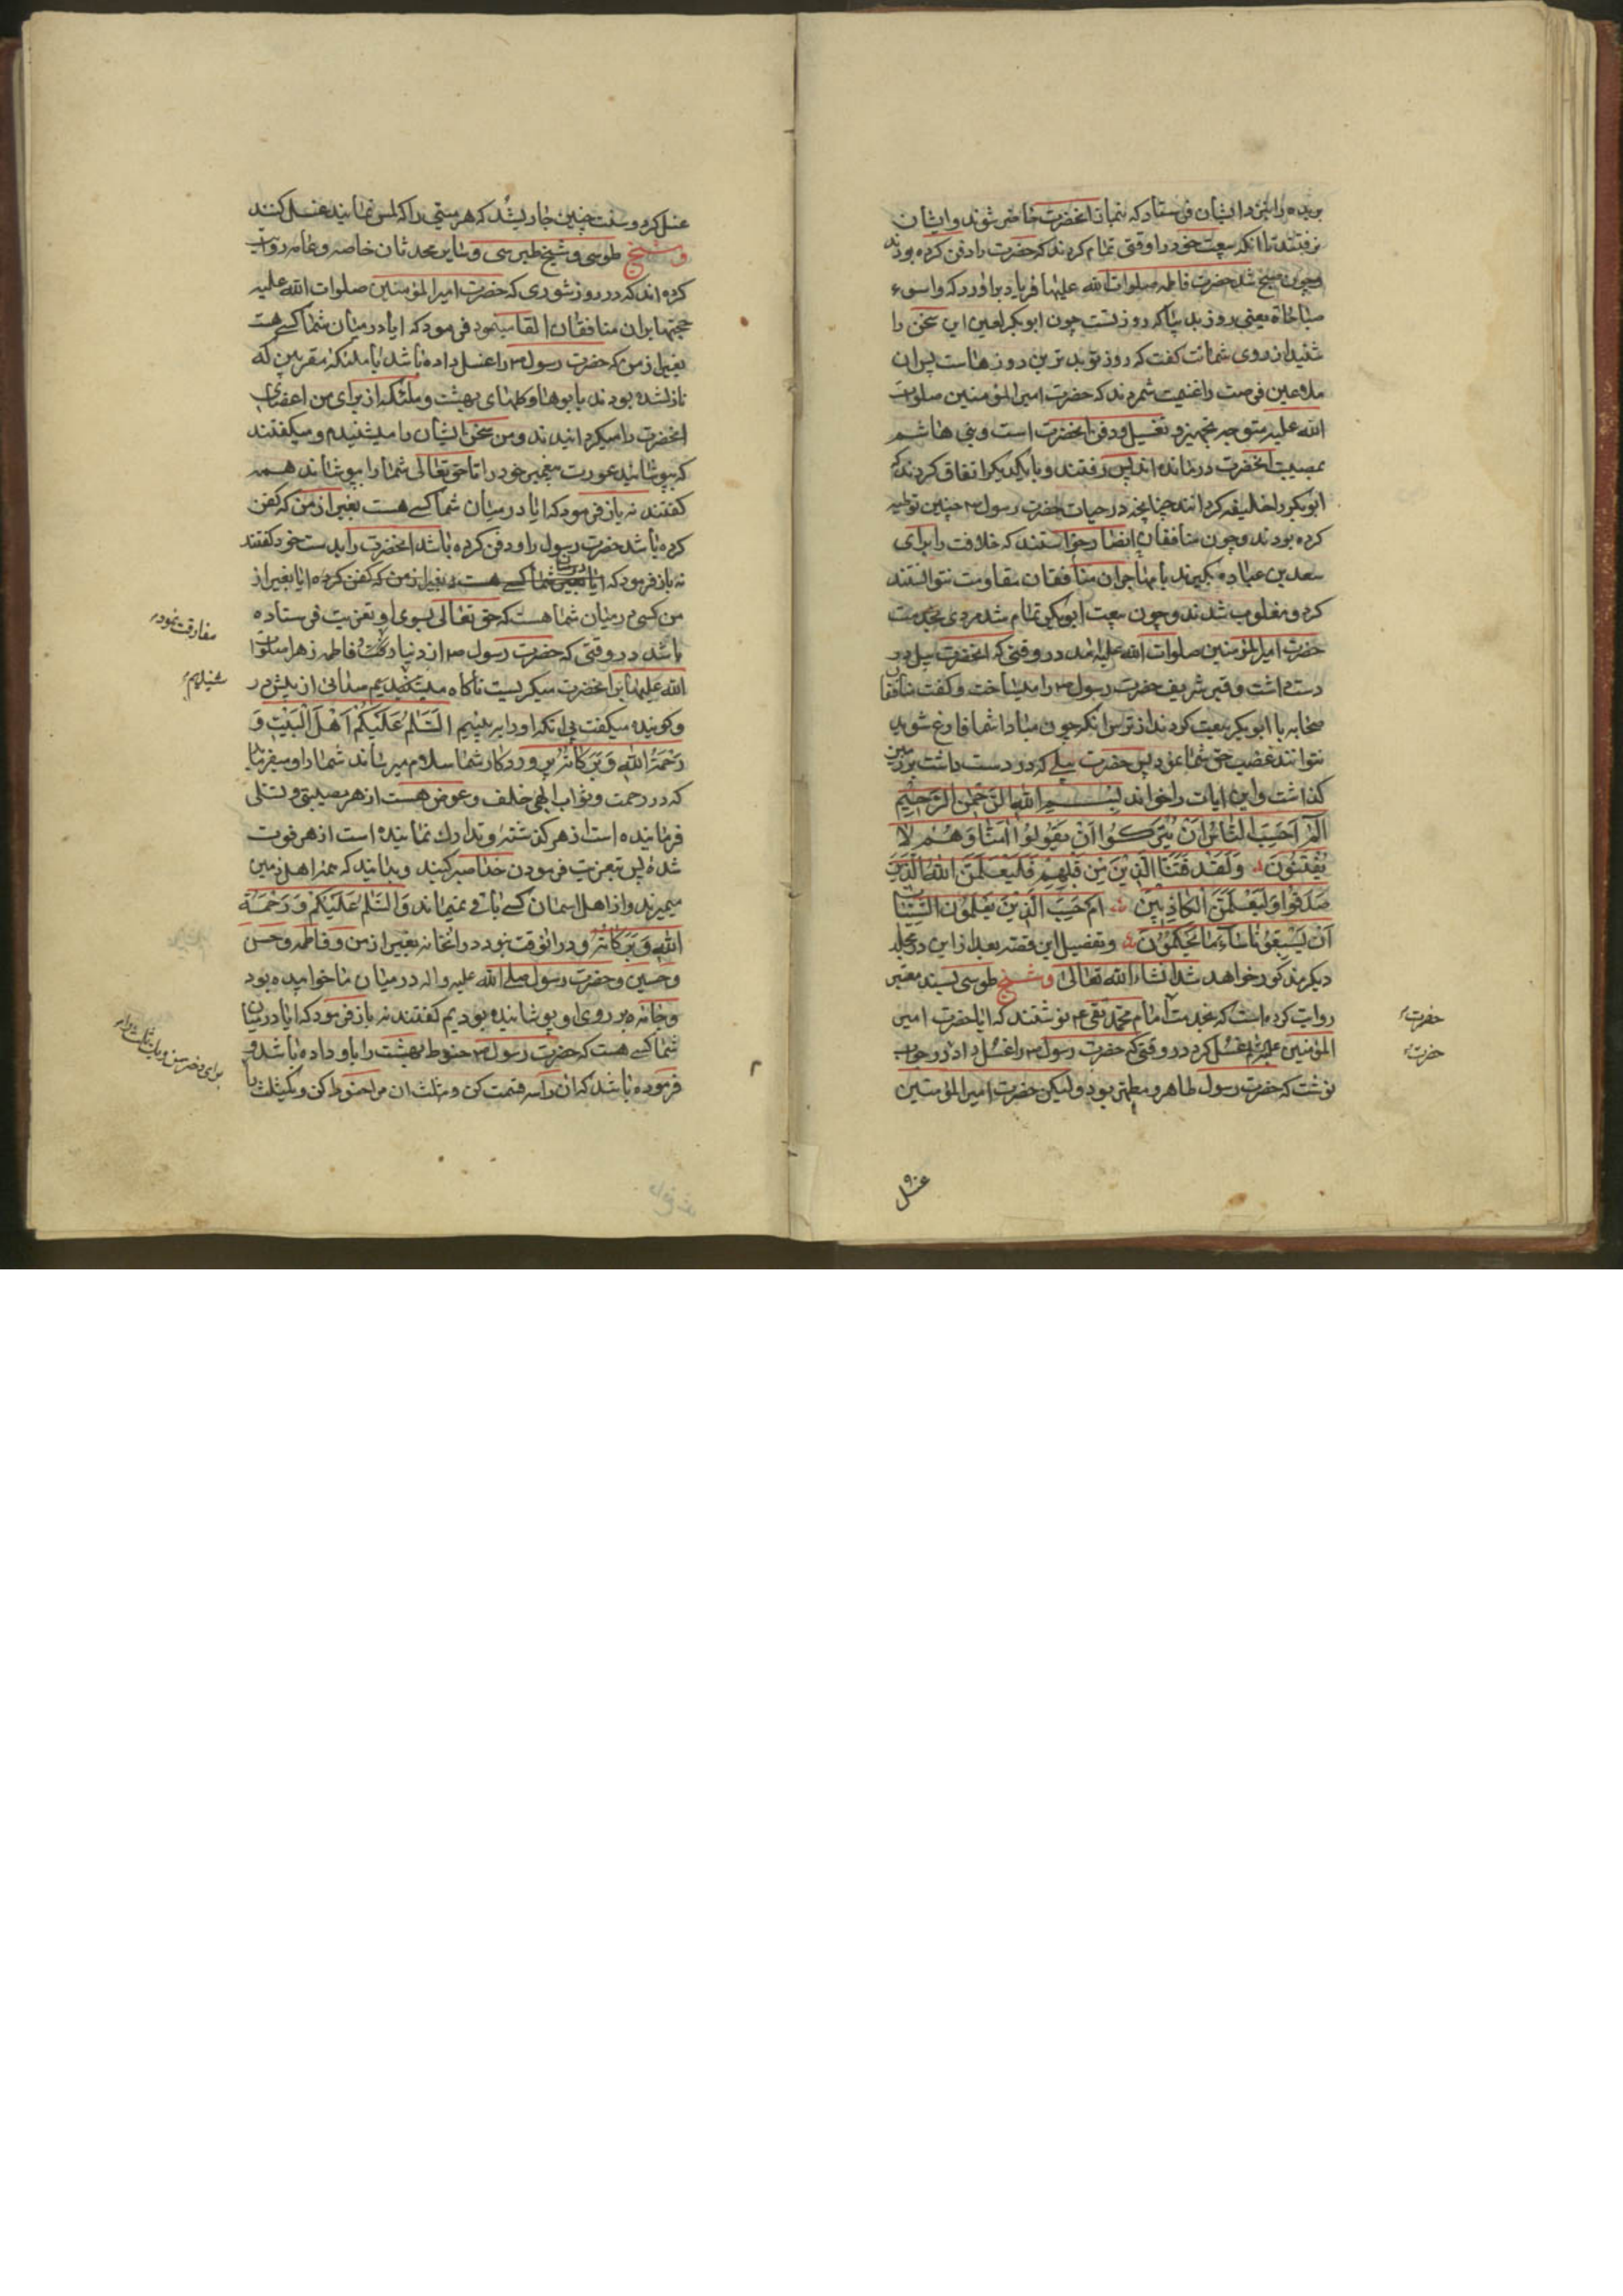 بریده را بنزد ایشان فرستاد که بنماز آنحضرت حاضر شوند و ایشان
نرفتند تا آنکه بیعت خود را وقتی تمام کردند که حضرت را دفن کرده بودند
و چون صبح شد حضرت فاطمه صلوات الله علیها فریاد براورد که واسوء
صباحاه یعنی روز بد بیا که روز تست چون ابوبکر لعین این سخن را
شنید از روی شماتت کفت که روز تو بدترین روزهاست پس ان
ملاعین فرصت را غنیمت شمردند که حضرت امیر المؤمنین صلوات
الله علیه متوجه تجهیز و تغسیل و دفن انحضرت است و بنی هاشم
بمصیبت انحضرت درمانده اند پس رفتند و با یکدیکر اتفاق کردند که
ابوبکر را خلیفه کردانند چنانچه در حیات حضرت رسول ص چنین توطیه
کرده بودند و چون منافقان انصار خواستند که خلافت را برای
سعد بن عباده بکیرند با مهاجران منافقان مقاومت نتوانستند
کرد و مغلوب شدند و چون بیعت ابوبکر تمام شد مردی بخدمت
حضرت امیر المؤمنین صلوات الله علیه امد در وقتی که انحضرت بیل در
دست داشت و قبر شریف حضرت رسول ص را میساخت و کفت منافقان
صحابه با ابوبکر بیعت کردند از ترس انکه چون مبادا شما فارغ شوید
نتوانند غصب حق شما نمود پس حضرت بیلی که در دست داشت بر زمین
کذاشت و این ایات را خواند بسم الله الرحمن الرحیم
الم احسب الناس ان یترکوا ان یقولوا امنا وهم لا
یفتنون ولقد فتنا الذین من قبلهم فلیعلمن الله الذین
صدقوا ولیعلمن الکاذبین ام حسب الذین یعلمون السیئات
ان یسبقونا ساء ما یحکمون و تفصیل این قصه بعد از این در مجلد
دیکر مذکور خواهد شد انشاء الله تعالی و شیخ طوسی بسند معتبر
روایت کرده است که بخدمت امام محمد تقی ع نوشتند که ایا حضرت امیر
المؤمنین علیه السلام غسل کرد در وقتی که حضرت رسول ص را غسل داد در جواب
نوشت که حضرت رسول طاهر و مطهر بود ولیکن حضرت امیر المؤمنین
حضرت
حضرت
غسل
غسل کرد و سنت چنین جاری شد که هر میتی را که لمس نمایند غسل کنند
و شیخ طوسی و شیخ طبرسی و سایر محدثان خاصه و عامه روایت
کرده اند که در روز شوری که حضرت امیر المؤمنین صلوات الله علیه
حجتها بران منافقان القا مینمود فرمود که ایا در میان شما کسی هست
بغیر از من که حضرت رسول ص را غسل داده باشد با ملئکه مقربین که
نازل شده بودند با بوها و کلهای بهشت و ملئکه از برای من اعضای
انحضرت را میکردانیدند و من سخن ایشان را میشنیدم و میکفتند
که بپوشانید عورت پیغمبر خود را تا حق تعالی شما را بپوشاند همه
کفتند نه باز فرمود که ایا در میان شما کسی هست بغیر از من که کفن
کرده باشد حضرت رسول را و دفن کرده باشد انحضرت را بدست خود کفتند
نه باز فرمود که ایا در میان شما کسی هست بغیر از من که کفن کرده ایا بغیر از
من کسی در میان شما هست که حق تعالی بسوی او تعزیت فرستاده
باشد در وقتی که حضرت رسول ص از دنیا و فاطمه زهرا صلوات
الله علیها بر انحضرت میکریست ناکاه صدائی از پیش در
و کوینده میکفت بی انکه او را به بینیم السلام علیکم اهل البیت و
رحمة الله وبرکاته پروردکار شما سلام میرساند شما را و میفرماید
که در رحمت و ثواب الهی خلف و عوض هست از هر مصیبتی و تسلی
فرماینده است از هر کذشته و تدارک نماینده است از هر فوت
شده پس بتعزیت فرمودن خدا صبر کنید و بدانید که همه اهل زمین
میمیرند و از اهل اسمان کسی باقی نمیماند والسلام علیکم و رحمة
الله وبرکاته و در انوقت نبود در انخانه بغیر از من و فاطمه و حسن
و حسین و حضرت رسول صلی الله علیه و اله در میان ما خوابیده بود
و جامه بر روی او پوشانیده بودیم کفتند نه باز فرمود که ایا در میان
شما کسی هست که حضرت رسول ص حنوط بهشت را باو داده باشد و
فرموده باشد که ان را سه قسمت کن و یک ثلث ان مرا حنوط کن و یک ثلث را
مفارقت نموده
شنیدیم